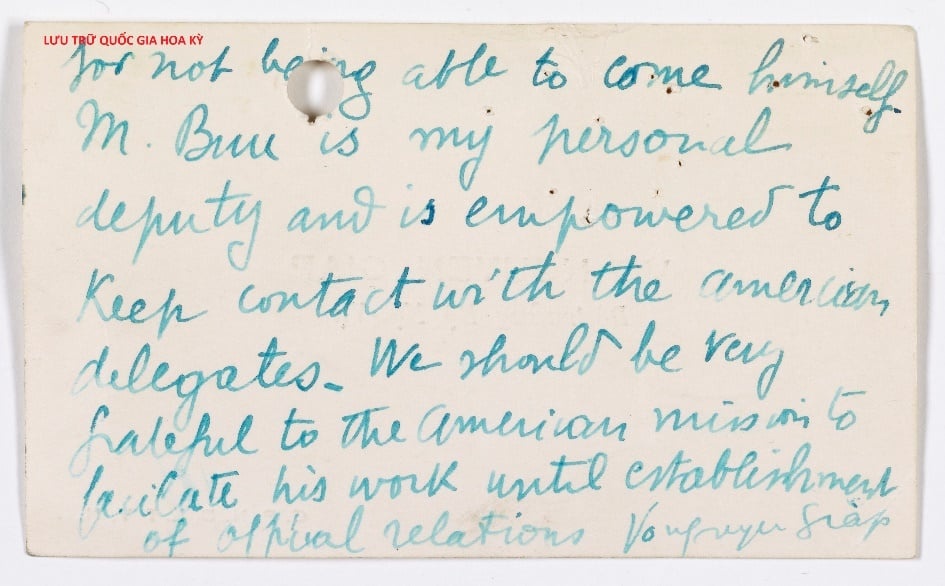 LƯU TRỮ QUỐC GIA HOA KỲ
for not being able to come himself.
M. Buu is my personal
deputy and is empowered to
Keep contact with the american
delegates. We should be very
grateful to the American mission to
facilate his work until establishment
of official relations Vonguyen Giap